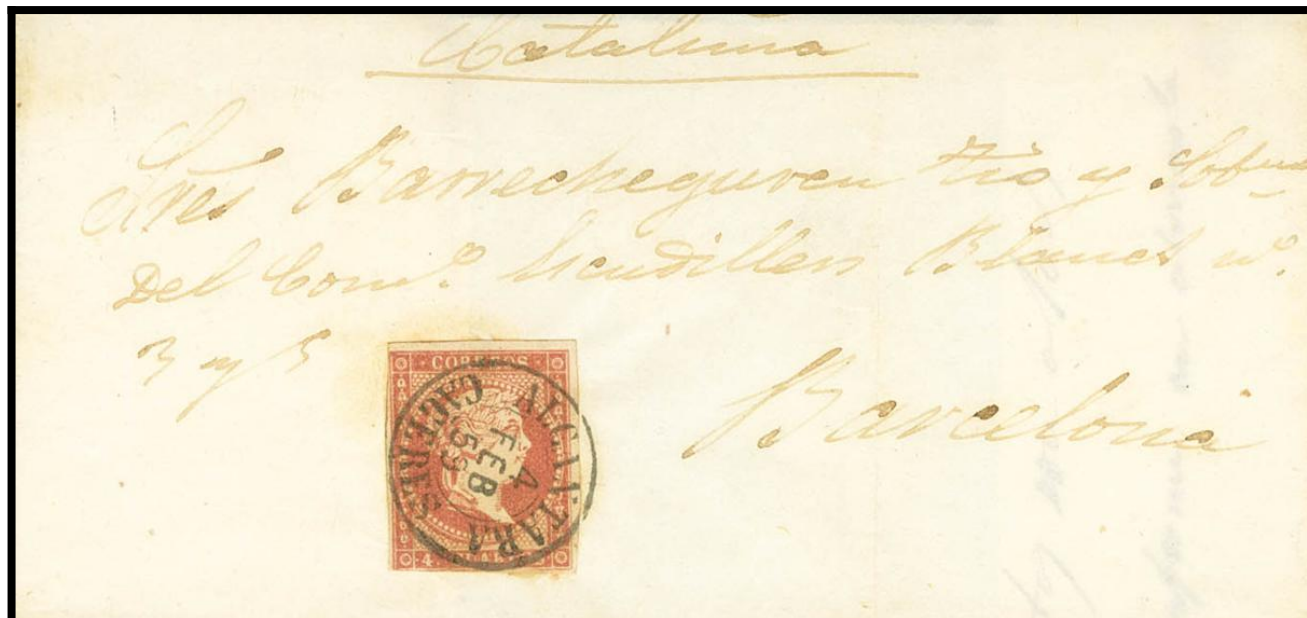 Cataluna
Sres Barrecheguren Tio y Sobno
Del Comº. Escudillers Blanchs nº.
3 y 5
Barcelona
CORREOS
ALCANTARA
4
FEB
59
CACERES
4